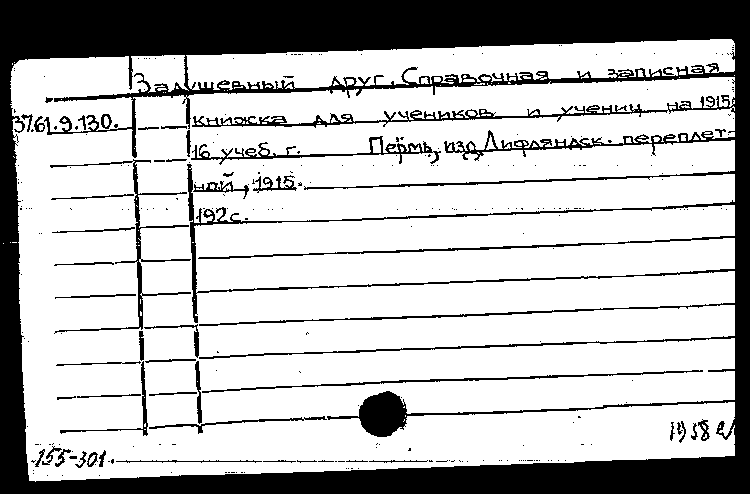 Задушевный друг. Справочная и записная
37.61.9.130. книжка для учеников и учениц на 1915
16 учеб. г. Пермь, изд. Лифляндск. переплет-
ной, 1915.
192 с.
1958
155-301.